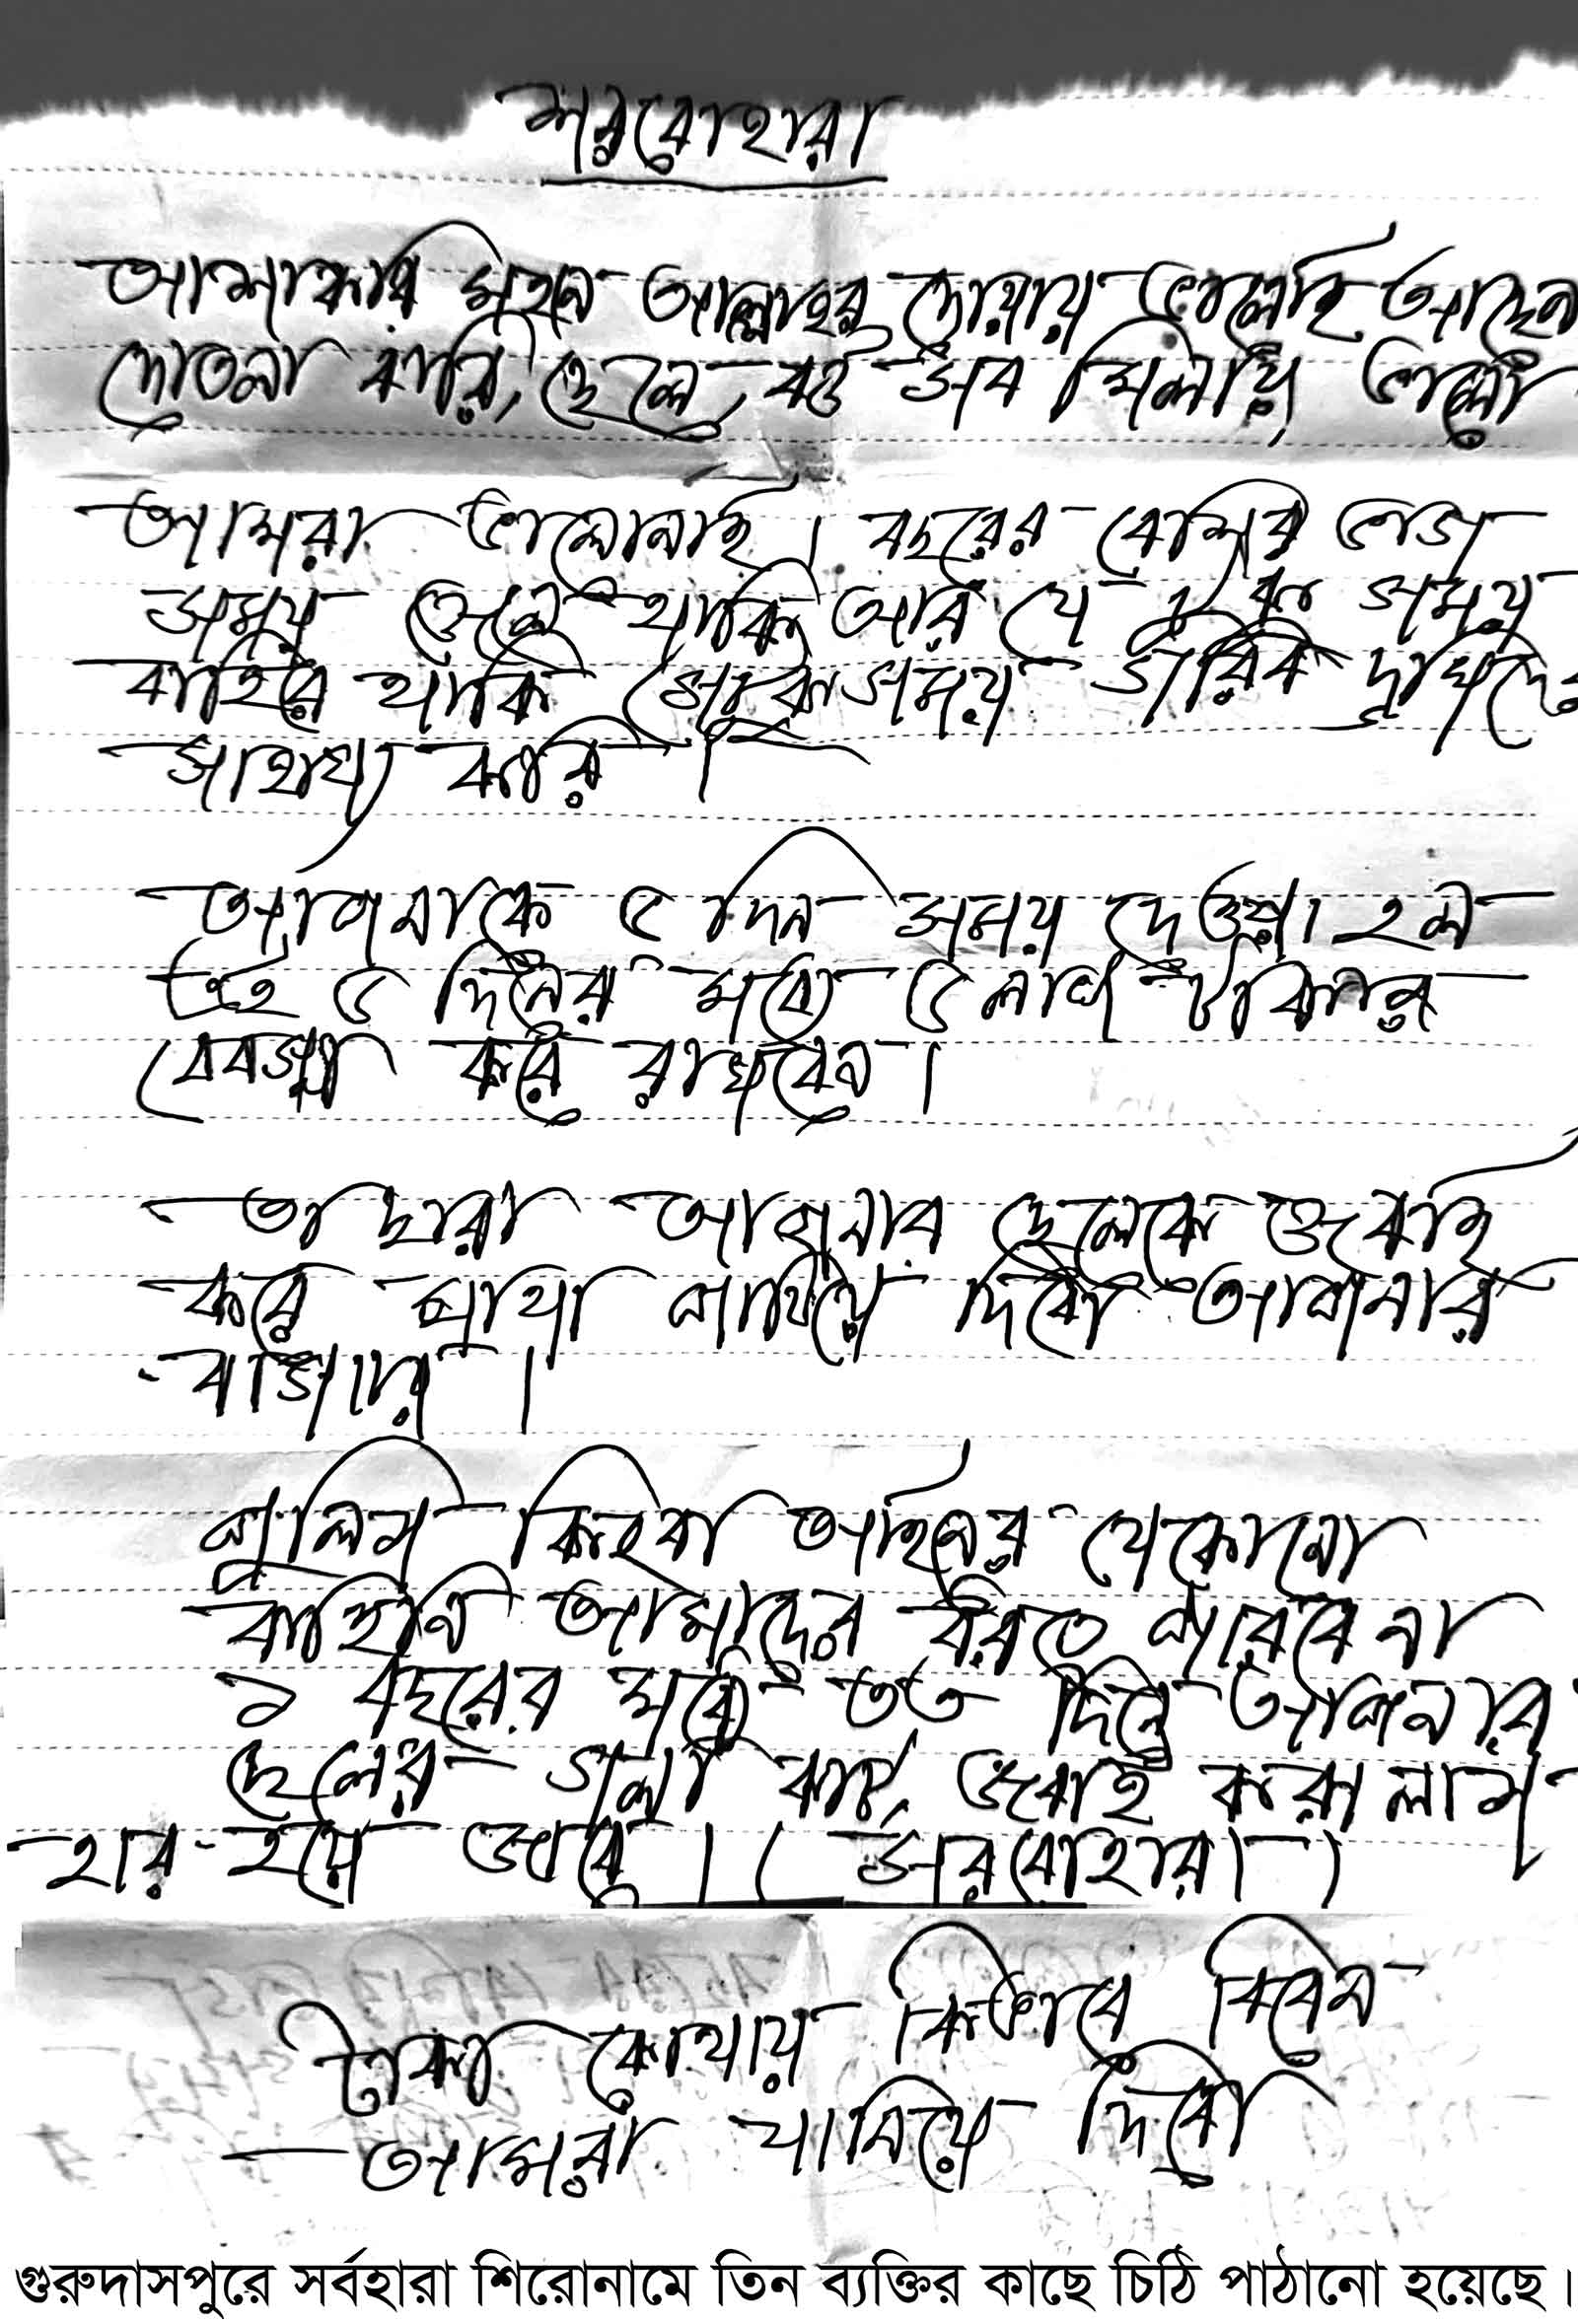 সরবোহারা
আশাকরি মহান আল্লাহর দোয়ায় ভালোই আছেন
দোতলা বারি, ছেলে, বউ সব মিলায় ভালো
আমরা ভালোনাই। বছরের বেশির ভাগ
সময় জেলে থাকি আর যে টুকু সময়
বাহিরে থাকি সেটুকু সময় গরিব দুখিদের
সাহায্য করি।
আপনাকে ৫ দিন সময় দেওয়া হল
এই ৫ দিনের মধ্যে ৫ লাখ টাকার
বেবস্থা করে রাখবেন।
তাছারা আপনার ছেলেকে জবাই
করে মাথা পাঠিয়ে দিবো আপনার
বাসায়।
পুলিশ কিংবা আইনের যেকোনো
বাহিনি আমাদের ধরতে পারবে না
১ বছরের মধ্যে তত দিনে আপনার
ছেলের গলা কাটা, জবাই করা লাশ
হার হয়ে যাবে। (সরবোহারা)
টাকা কোথায় কিভাবে দিবেন
আমরা যানিয়ে দিবো
গুরুদাসপুরে সর্বহারা শিরোনামে তিন ব্যক্তির কাছে চিঠি পাঠানো হয়েছে।